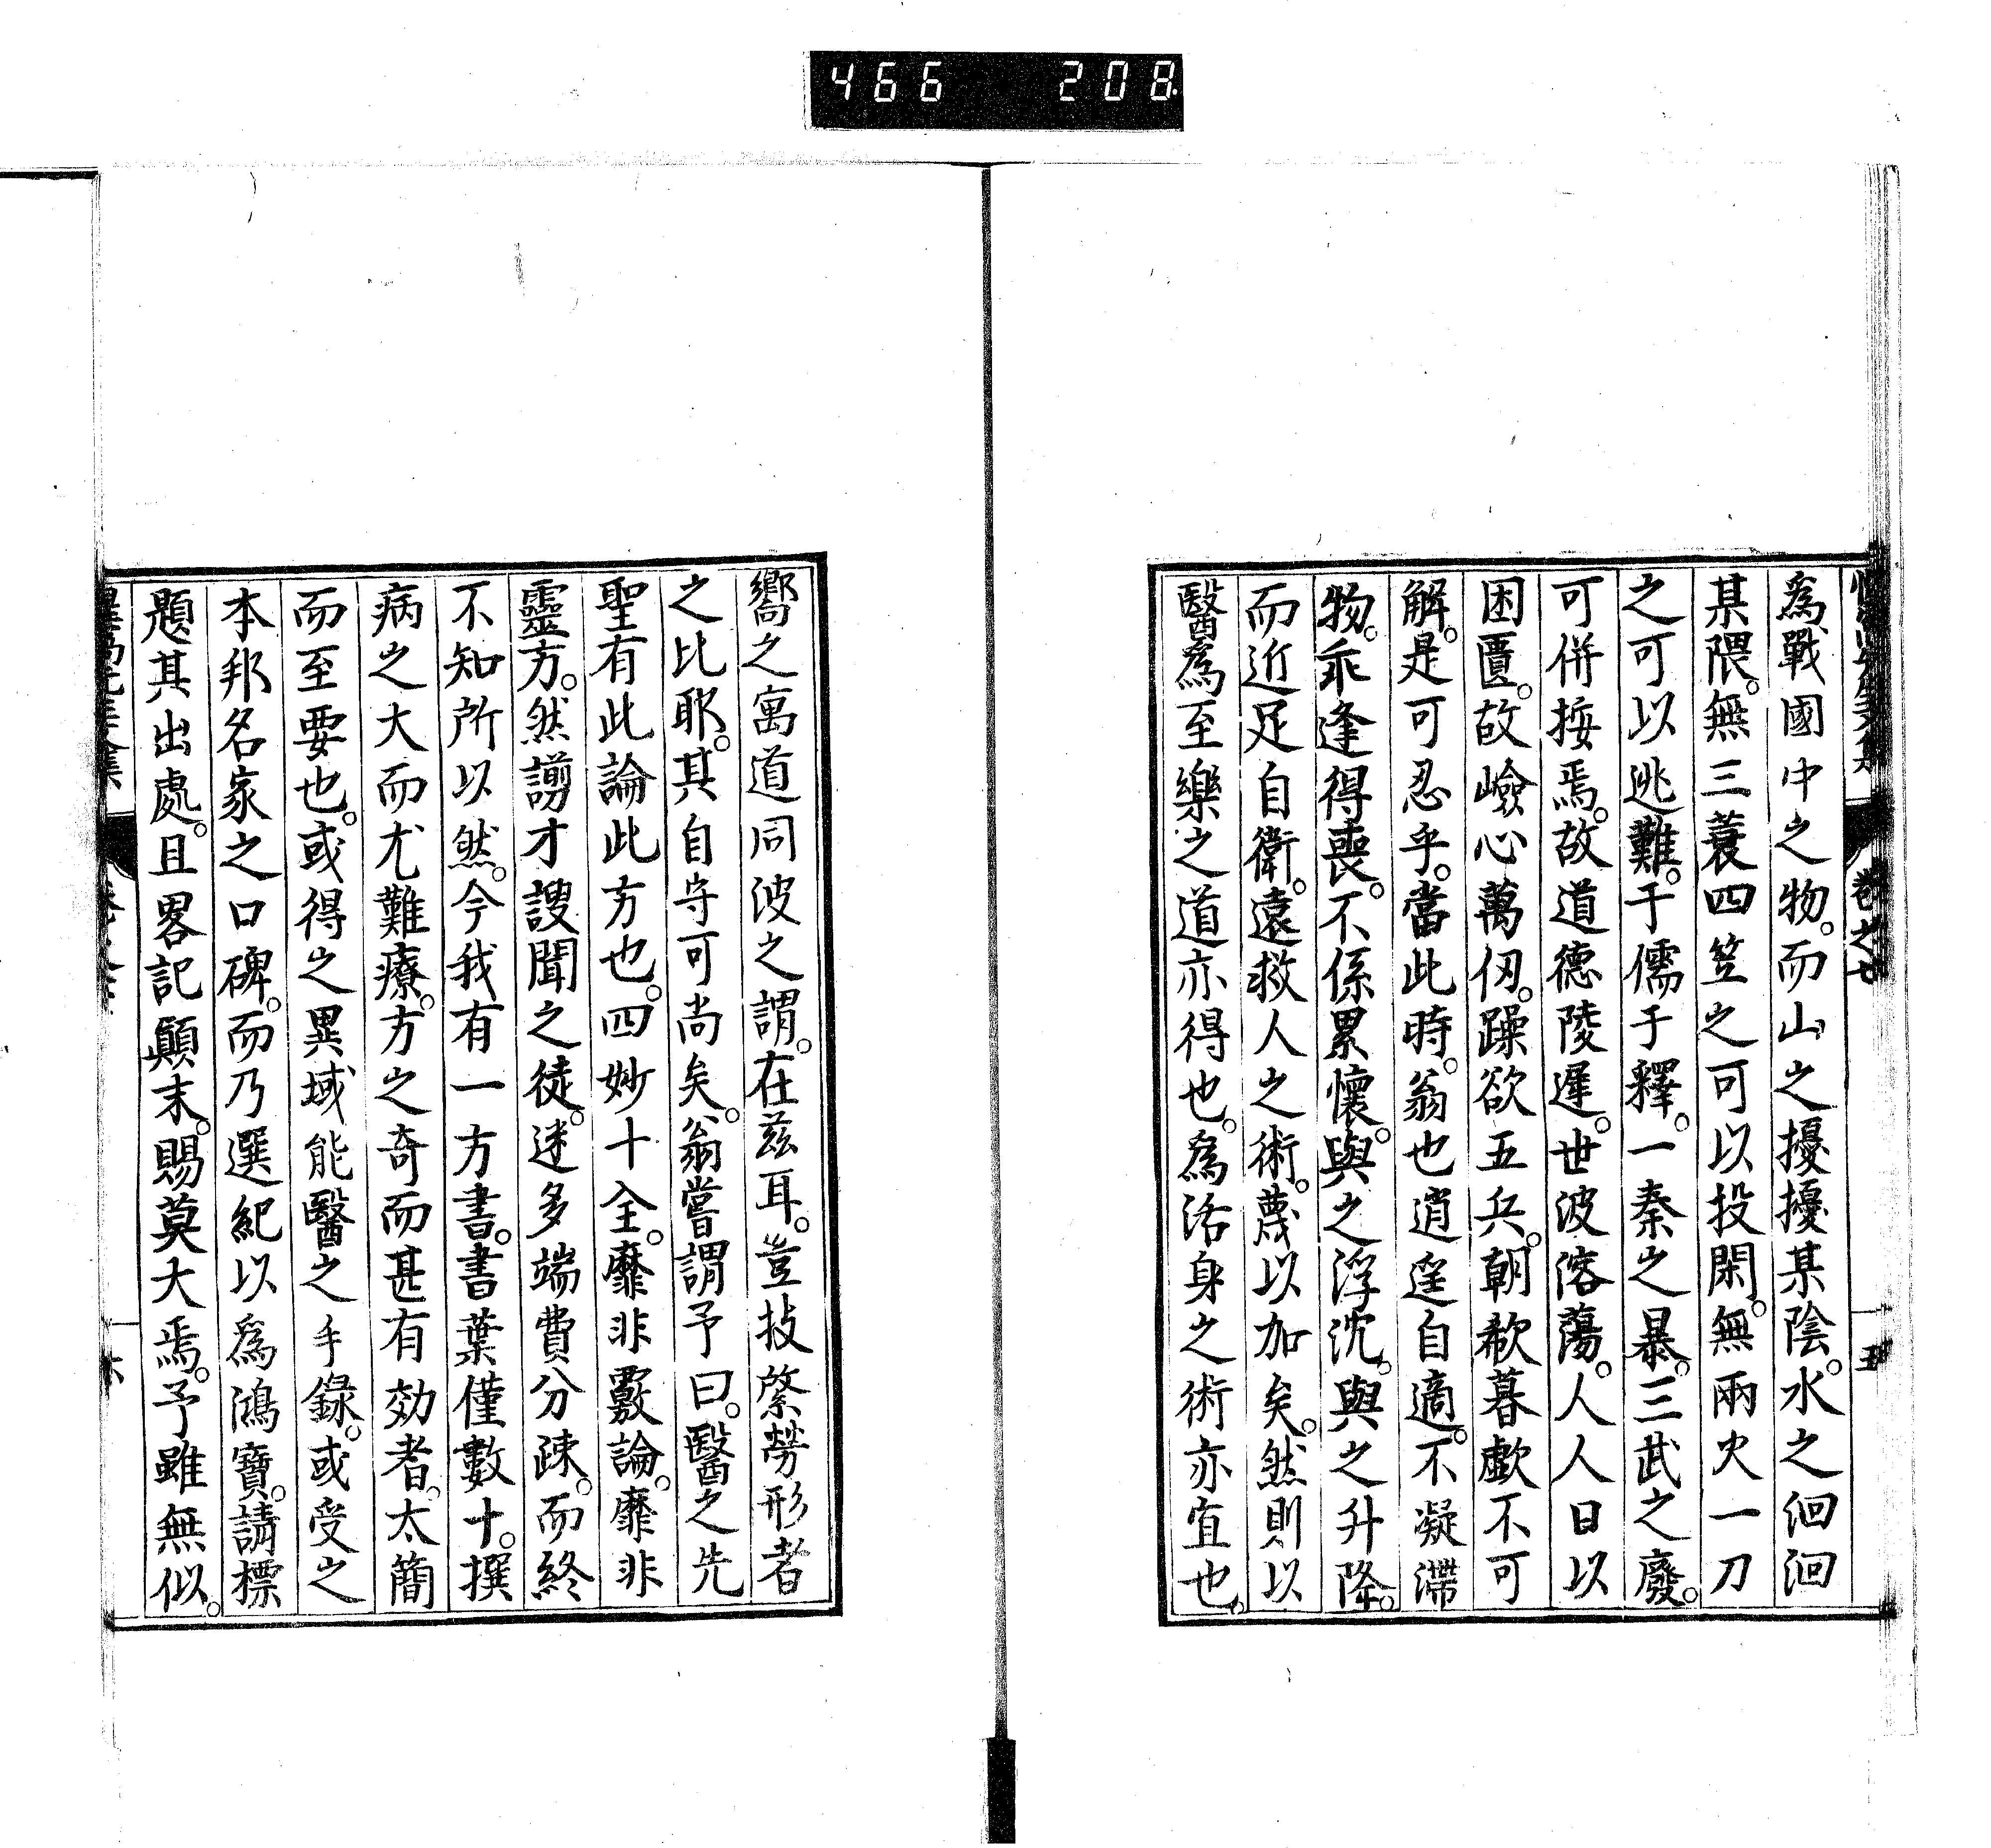 466 208
卷之七
五
爲戰國中之物。而山之擾擾某陰。水之洄洄
某隈。無三蓑四笠之可以投閑。無兩火一刀
之可以逃難。于儒于釋。一秦之暴。三武之廢。
可併按焉。故道德陵遲。世波溶蕩。人人日以
困匱。故嶮心萬仞。躁欲五兵。朝欷暮歔不可
解。是可忍乎。當此時。翁也逍遥自適。不凝滯
物。乖逢得喪。不係累懷。與之浮沈。與之升降。
而近足自衛。遠救人之術。蔑以加矣。然則以
醫爲至樂之道亦得也。爲活身之術亦宜也。
嚮之寓道同波之謂。在茲耳。豈技綮勞形者
之比耶。其自守可尚矣。翁嘗謂予曰。醫之先
聖有此論此方也。四妙十全。靡非覈論。靡非
靈方。然謭才謏聞之徒。迷多端費分疎。而終
不知所以然。今我有一方書。書葉僅數十。撰
病之大而尤難療。方之奇而甚有効者。太簡
而至要也。或得之異域能醫之手錄。或受之
本邦名家之口碑。而乃選紀以爲鴻寶。請標
題其出處。且畧記顚末。賜莫大焉。予雖無似。